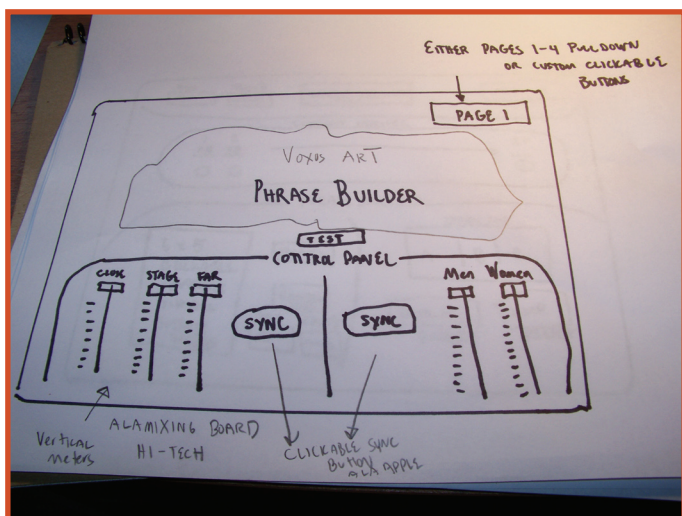 EITHER PAGES 1-4 PULLDOWN
OR CUSTOM CLICKABLE
BUTTONS
PAGE 1
VOXUS ART
PHRASE BUILDER
TEST
CONTROL PANEL
CLOSE
STAGE
FAR
Men
Women
SYNC
SYNC
Vertical
meters
ALA MIXING BOARD
HI-TECH
CLICKABLE SYNC
BUTTON
ALA APPLE